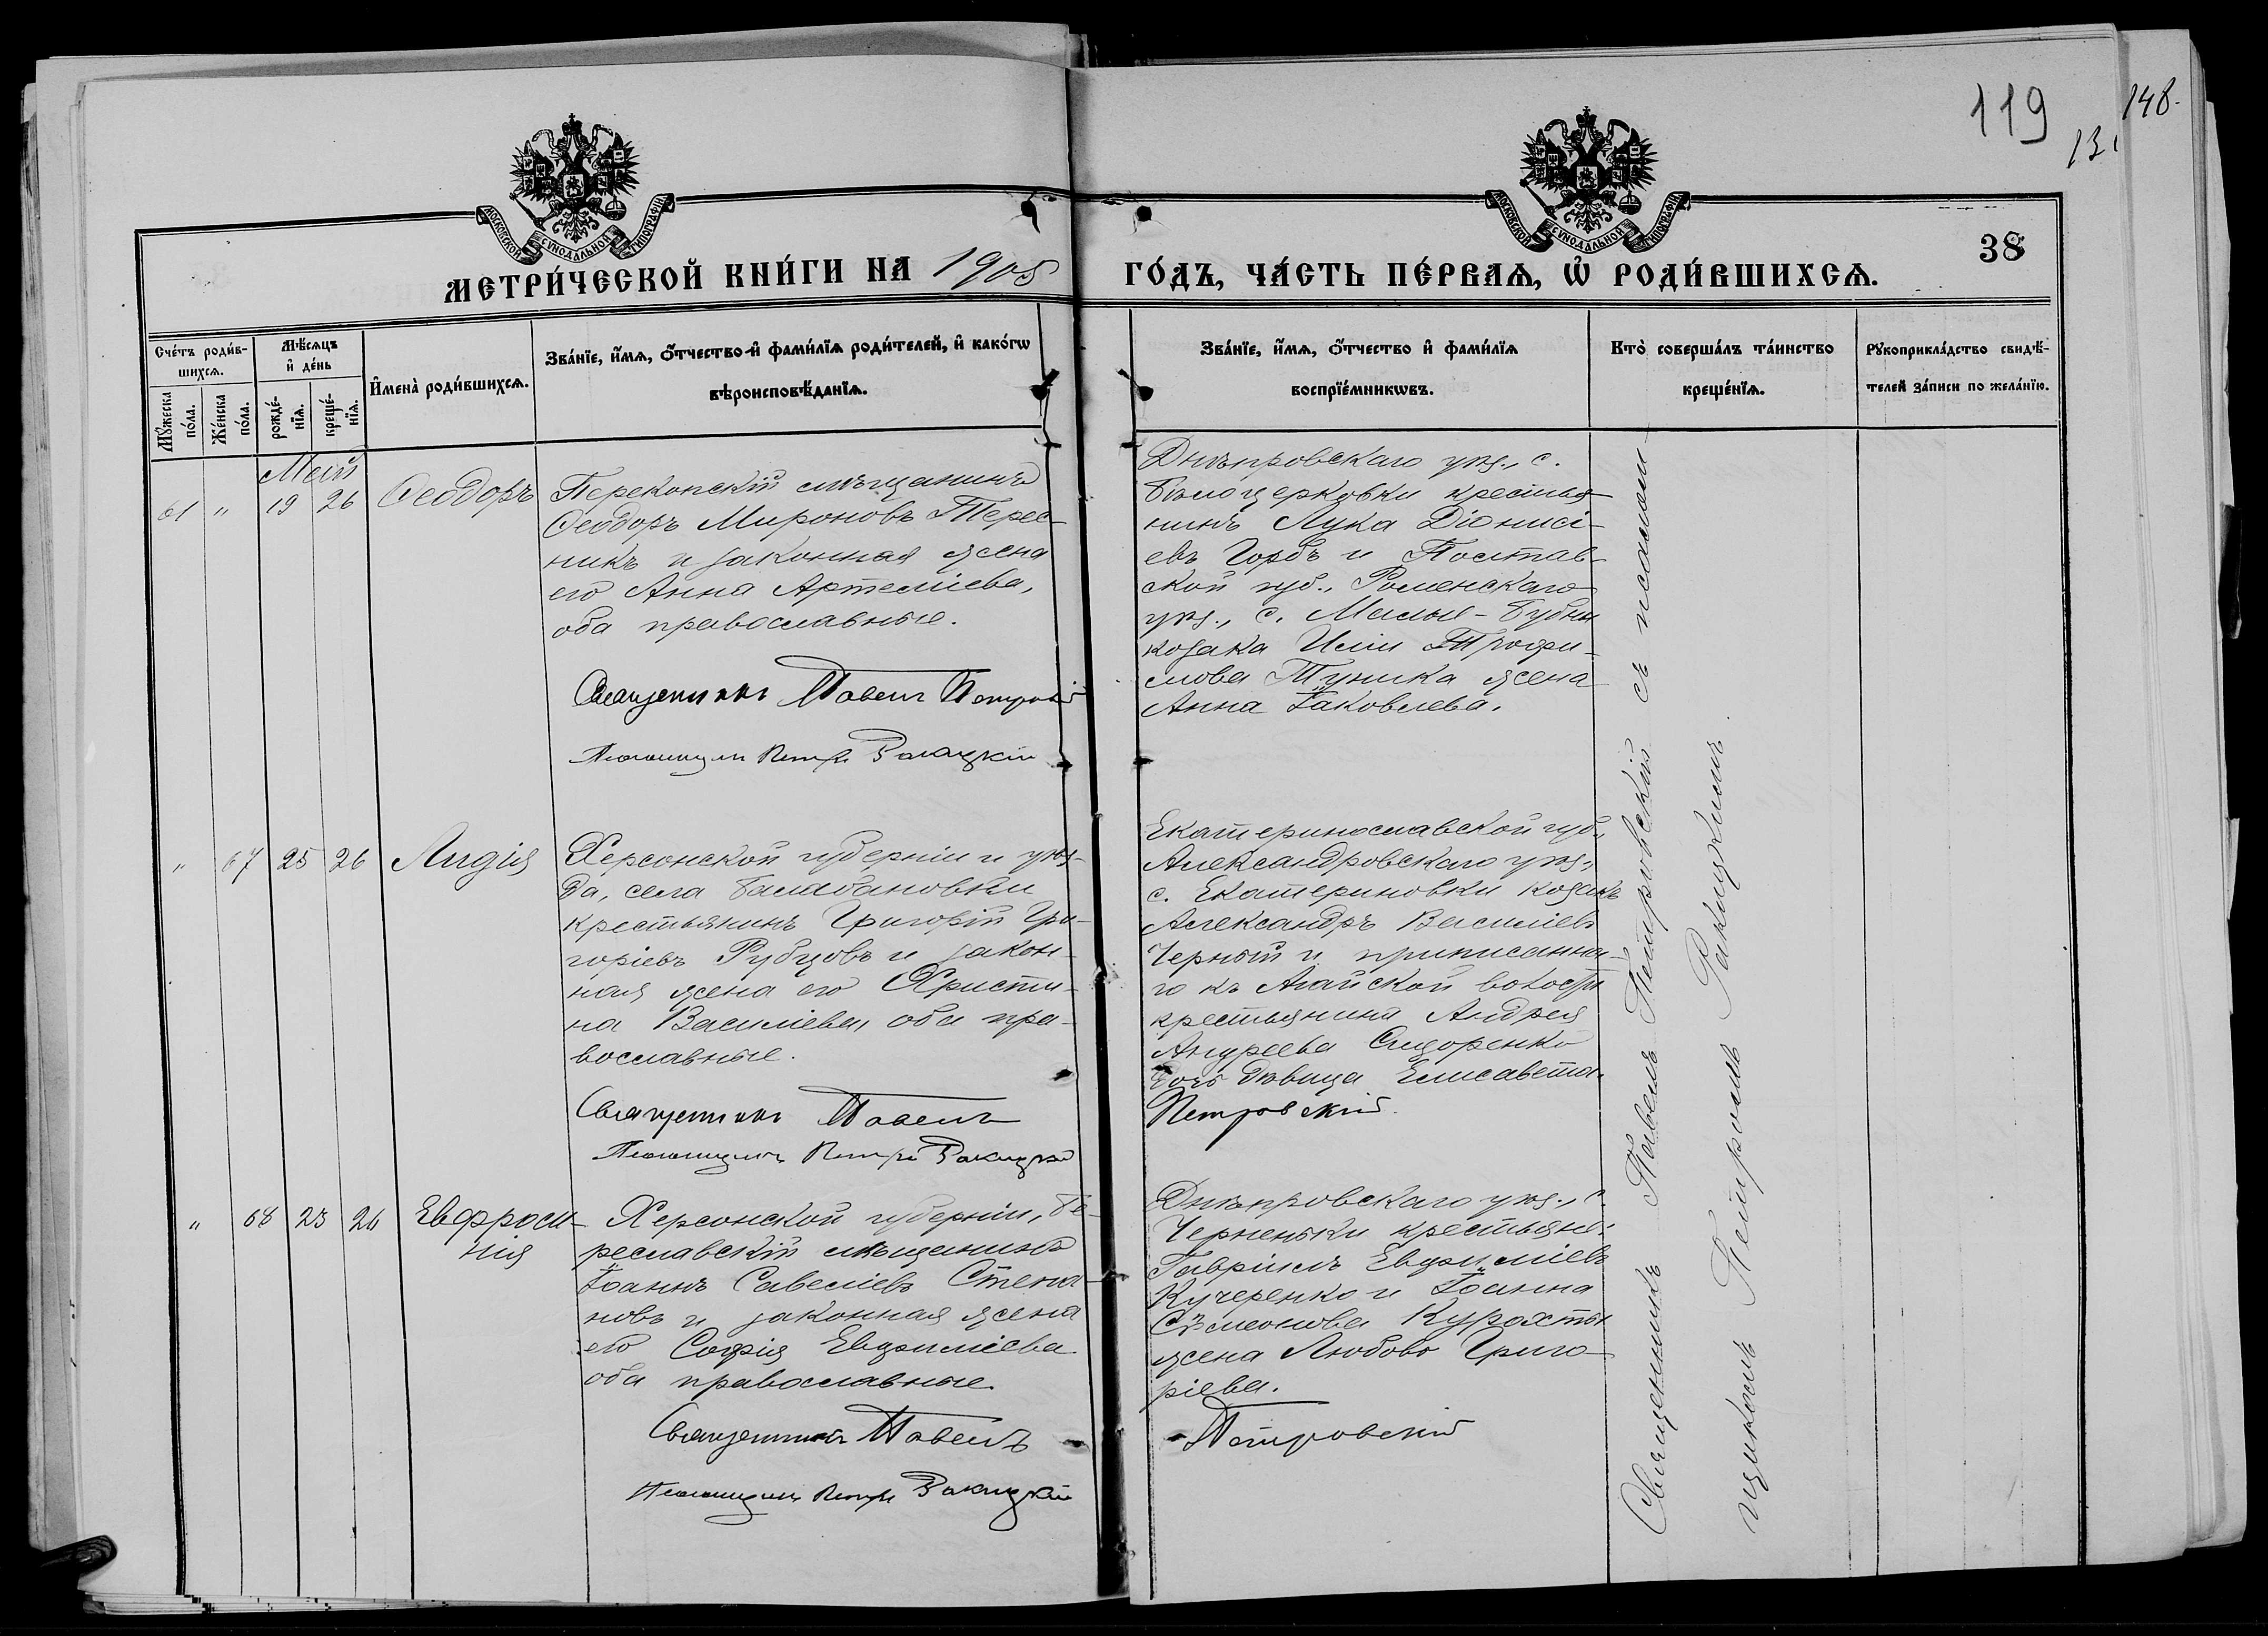 119
148.
131
МОСКОВСКОЙ СѴНОДАЛЬНОЙ ТИПОГРАФІИ
МОСКОВСКОЙ СѴНОДАЛЬНОЙ ТИПОГРАФІИ
38
МЕТРИ́ЧЕСКОЙ КНИ́ГИ НА 1905 ГО́ДЪ, ЧА́СТЬ ПЕ́РВАѦ, Ѡ҆ РОДИ́ВШИХСѦ.
Сче́тъ роди́в-
шихсѧ.
Мꙋ́жеска
по́ла.
Же́нска
по́ла.
Мѣ́сѧцъ
и҆ де́нь
рожде́-
нїѧ.
креще́-
нїѧ.
И҆мена̀ роди́вшихсѧ.
Зва́нїе, и҆́мѧ, ѻ҆́тчество и҆ фами́лїѧ роди́телей, и҆ како́гѡ
вѣроисповѣ́данїѧ.
Зва́нїе, и҆́мѧ, ѻ҆́тчество и҆ фами́лїѧ
воспрїе́мникѡвъ.
Кто̀ соверша́лъ та́инство
креще́нїѧ.
Рꙋкоприкла́дство свидѣ́-
телей за́писи по жела́нїю.
Май
61 " 19 26 Ѳеодоръ
Перекопскій мѣщанинъ
Ѳеодоръ Мироновъ Терес-
никъ и законная жена
его Анна Артеміева,
оба православные.
Священникъ Павелъ Петровскій
Псаломщикъ Петръ Ракицкій
Днѣпровскаго уѣз., с.
Бѣлоцерковки крестья-
нинъ Лука Діонисі-
евъ Горбъ и Полтав-
ской губ., Роменскаго
уѣз., с. Малые-Бубны
козака Иліи Трофи-
мова Тупика жена
Анна Іаковлева.
" 67 25 26 Лидія
Херсонской губерніи и уѣз-
да, села Балабановки
крестьянинъ Григорій Гри-
горіевъ Рубцовъ и закон-
ная жена его Христи-
на Василіева, оба пра-
вославные.
Священникъ Павелъ Петровскій.
Псаломщикъ Петръ Ракицкій
Екатеринославской губ.,
Александровскаго уѣз.,
с. Екатериновки козакъ
Александръ Василіевъ
Черный и приписанна-
го къ Агайской волости
крестьянина Андрея
Андреева Сидоренко
дочь дѣвица Елисавета.
" 68 25 26 Евфроси-
нія
Херсонской губерніи, Бе-
реславскій мѣщанинъ
Іоаннъ Савеліевъ Степа-
новъ и законная жена
его Софія Евфиміева
оба православные.
Священникъ Павелъ Петровскій
Псаломщикъ Петръ Ракицкій
Днѣпровскаго уѣз., с.
Черненьки крестьяне:
Гавріилъ Евфиміевъ
Кучеренко и Іоанна
Сѵмеонова Курохты
жена Любовь Григо-
ріева.
Священникъ Павелъ Петровскій съ псалом-
щикомъ Петромъ Ракицкимъ.